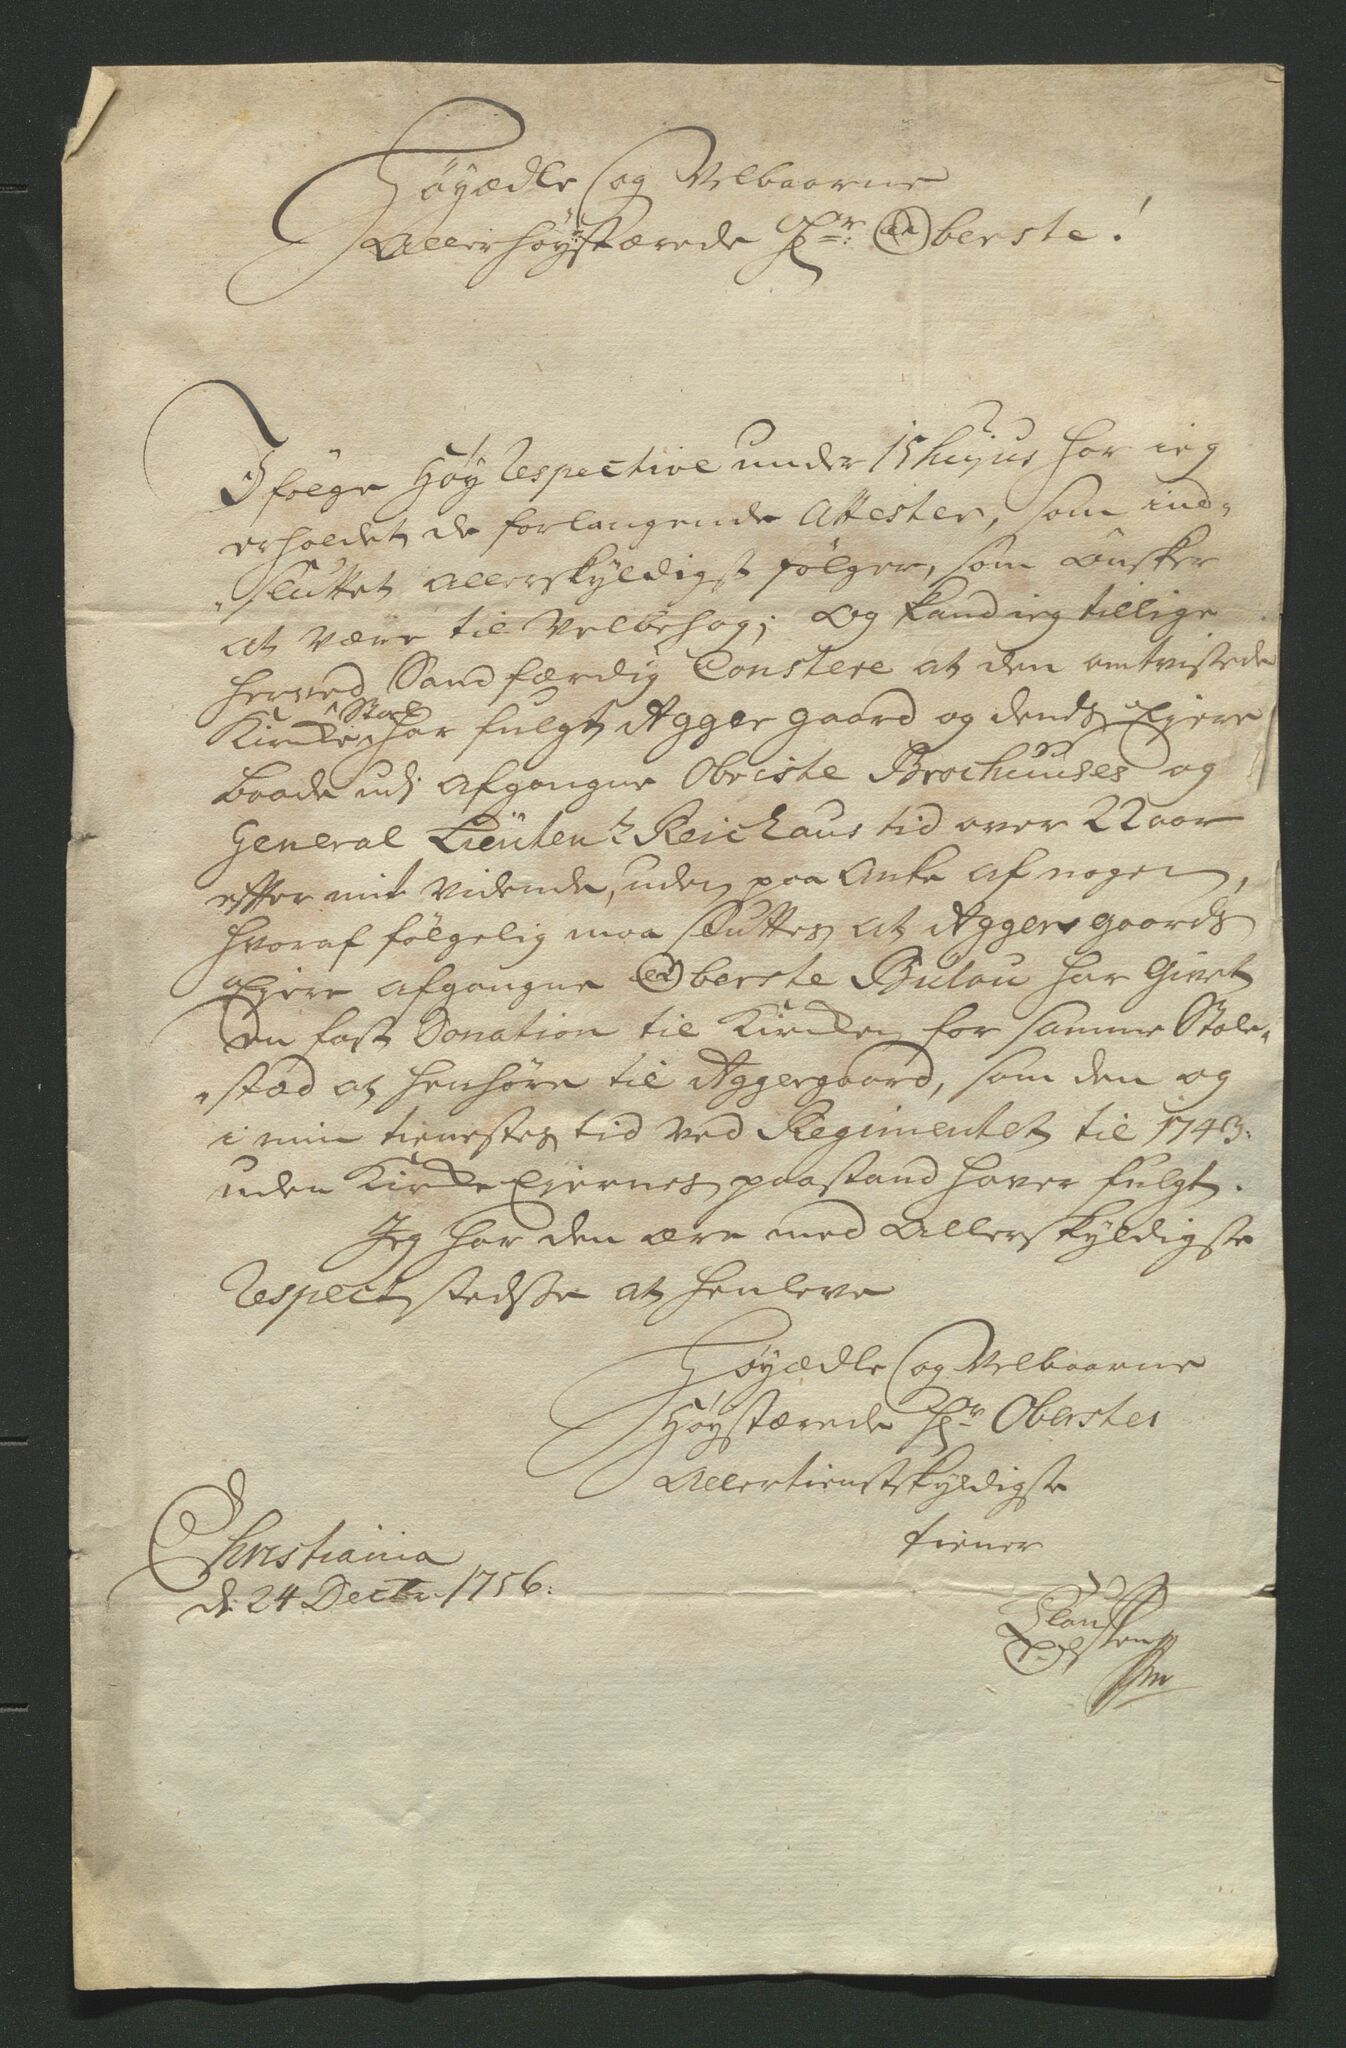 Høyædle og Velbaarne
Allerhøystærede Hr: Oberste!
I følge Høy Respective under 15 hujus har ieg
erholdet de forlangende Attester, som ind-
-sluttet allerskyldigst følger, som Ønsker
at være til Velbehag; Og kand ieg tillige
herved Sandfærdig Constere at den omtvistede
Kirke Stoel har fulgt Aggergaard og dends Ejere
baade udj afgangne Obriste Brochuuses og
General Lieuten: Reichaus tid over 22 aar
efter mit Vidende, uden paa Anke af nogen,
hvoraf følgelig maa sluttes at Aggersgaards
Ejere afgangne Oberste Bülou har Givet
En fast Donation til Kirken for samme Stole-
-stæd at henhøre til Aggergaard, som den og
i min tienestes tid ved Regimentet til 1743:
uden Kirke Ejernes paastand haver fulgt.
Jeg har den ære med Allerskyldigste
Respect stedsse at henleve
Høyædle og Velbaarne
Høystærede Hr Oberstes
Allertienstskyldigste
tiener
Christiania
d: 24 Decbr: 1756:
Claus